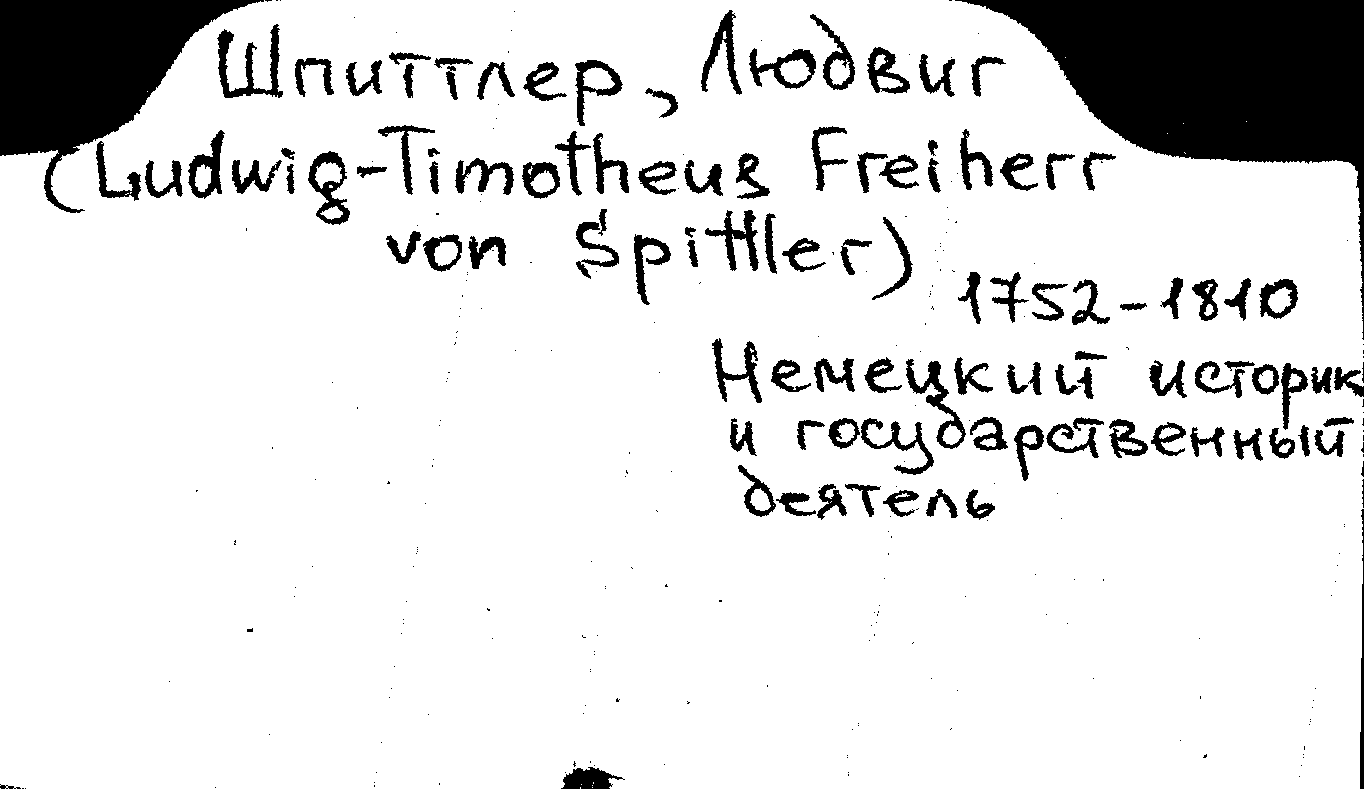 Шпиттлер, Людвиг
(Ludwig-Timotheus Freiherr
von Spittler)
1752-1810
Немецкий историк
и государственный
деятель